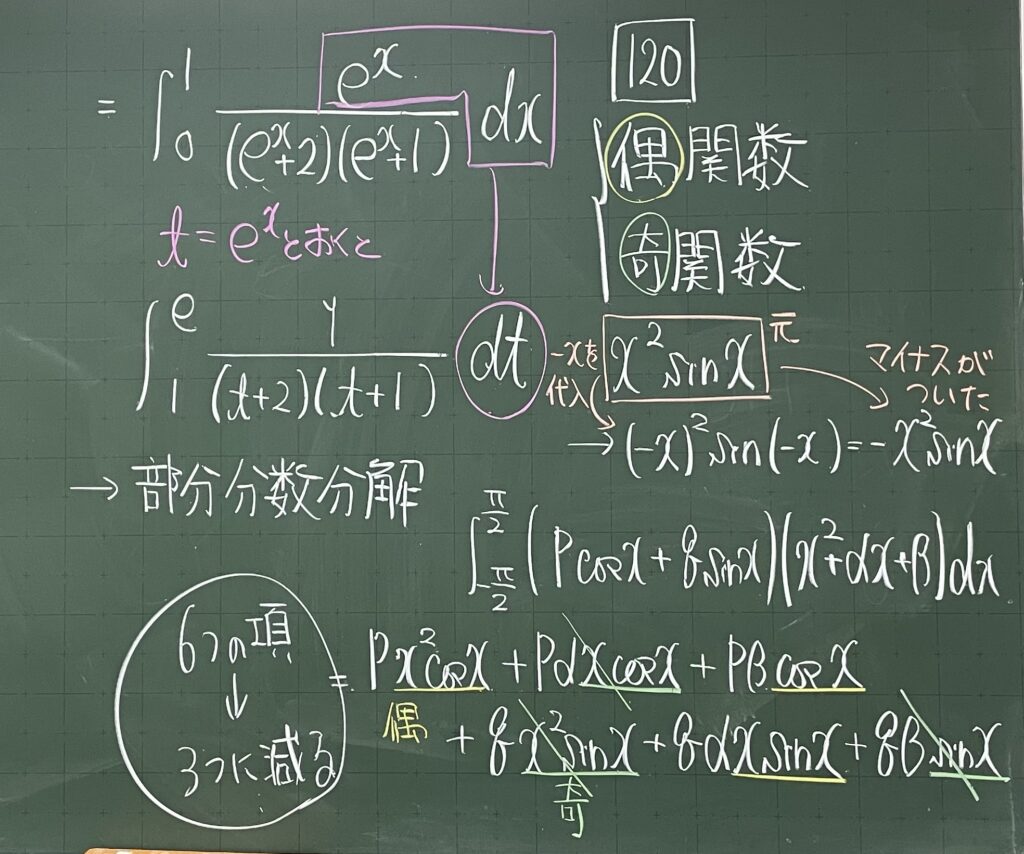 = ∫₀¹ eˣ / (eˣ+2)(eˣ+1) dx
t = eˣとおくと
∫₁ᵉ 1 / (t+2)(t+1) dt
→ 部分分数分解
6つの項
↓
3つに減る
120
偶関数
奇関数
x² sin x 元
-xを代入
マイナスがついた
→ (-x)² sin(-x) = -x² sin x
∫_{-π/2}^{π/2} (p cos x + q sin x)(x² + αx + β) dx
= p x² cos x + pα x cos x + pβ cos x
偶
+ q x² sin x + qα x sin x + qβ sin x
奇